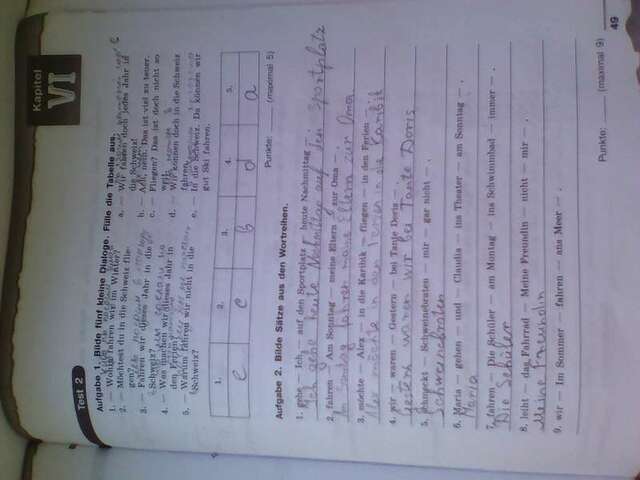 Kapitel
VI
Test 2
Aufgabe 1. Bilde fünf kleine Dialoge. Fülle die Tabelle aus.
1. — Wohin fahren wir im Winter?
2. — Möchtest du in die Schweiz flie-
gen?
3. — Fahren wir dieses Jahr in die
Schweiz?
4. — Was machen wir dieses Jahr in
den Ferien?
5. — Warum fahren wir nicht in die
Schweiz?
a. — Wir fahren doch jedes Jahr in
die Schweiz!
b. — Ach, nein. Das ist viel zu teuer.
c. — Fliegen? Das ist doch nicht so
weit.
d. — Wir können doch in die Schweiz
fahren.
e. — In die Schweiz. Da können wir
gut Ski fahren.
1. 2. 3. 4. 5.
e c b d a
Punkte: (maximal 5)
Aufgabe 2. Bilde Sätze aus den Wortreihen.
1. gehe — Ich — auf den Sportplatz — heute Nachmittag — .
Ich gehe heute Nachmittag auf den Sportplatz
2. fahren — Am Sonntag — meine Eltern — zur Oma — .
Am Sonntag fahren meine Eltern zur Oma
3. möchte — Alex — in die Karibik — fliegen — in den Ferien — .
Alex möchte in den Ferien in die Karibik
4. wir — waren — Gestern — bei Tante Doris — .
Gestern waren wir bei Tante Doris
5. schmeckt — Schweinebraten — mir — gar nicht — .
Schweinebraten
6. Maria — gehen — und — Claudia — ins Theater — am Sonntag — .
Maria
7. fahren — Die Schüler — am Montag — ins Schwimmbad — immer — .
Die Schüler
8. leiht — das Fahrrad — Meine Freundin — nicht — mir — .
Meine Freundin
9. wir — Im Sommer — fahren — ans Meer — .
Punkte: (maximal 9)
49